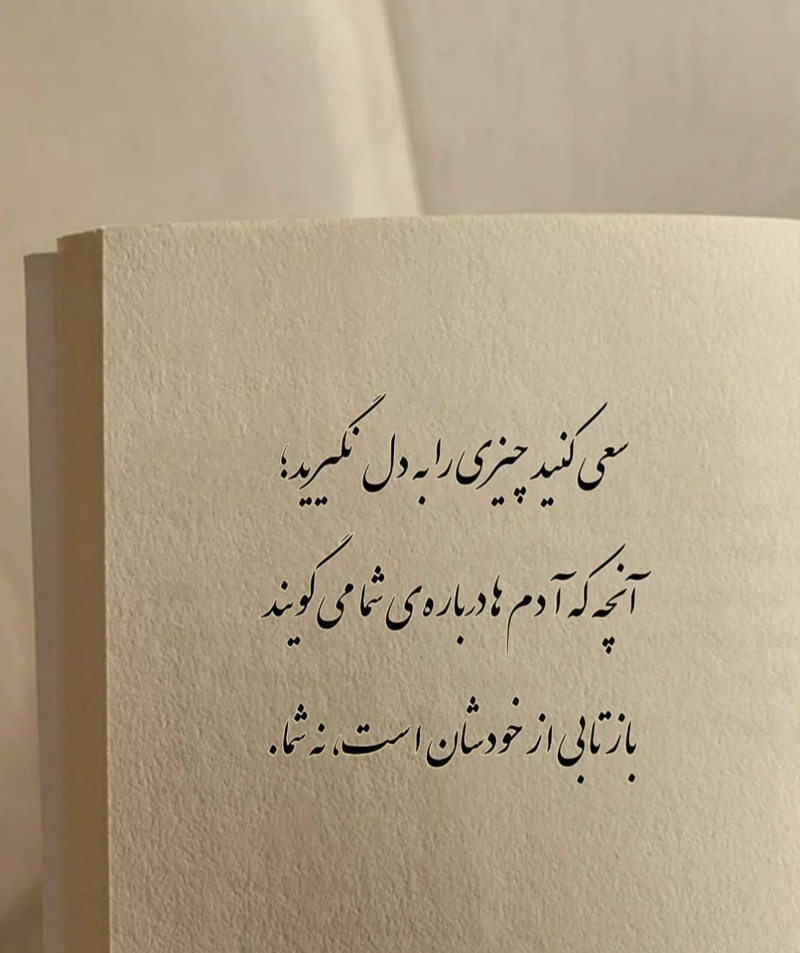 سعی کنید چیزی را به دل نگیرید؛
آنچه که آدم ها درباره ی شما می گویند
بازتابی از خودشان است، نه شما.